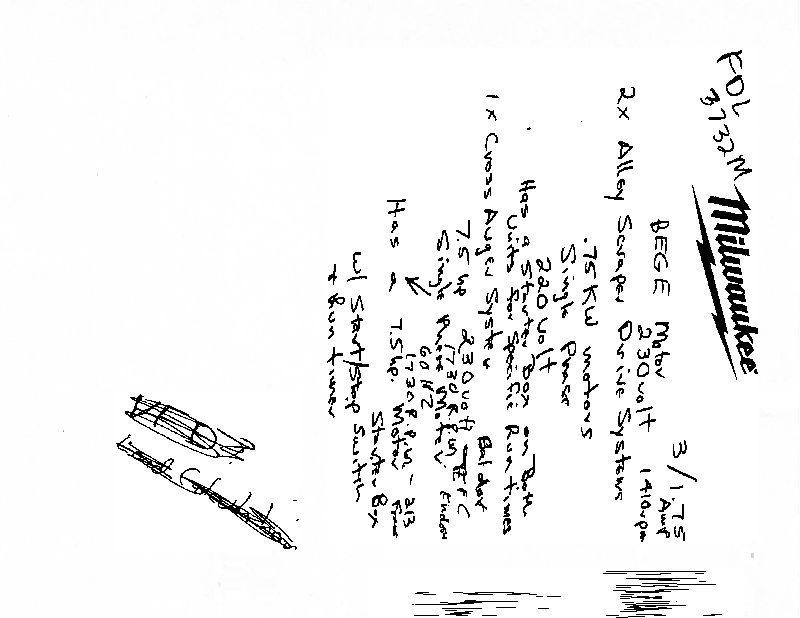 FDL
3732M
Milwaukee
BEGE Motor 3/1.75
230volt Amp
1410rpm
2x Alley Scraper Drive Systems
.75KW motors
Single Phase
220 volt
Has a Starter Box on Both
Units for Specific Run times
1x Cross Auger System
Baldor
7.5 hp 230volt TEFC
Single Phase Motor.
1730 R.P.M
60 HZ
Has a 7.5 hp. Motor
1730 R.P.M - 213
Starter Box
w/ Start/Stop Switch
+ Run timer